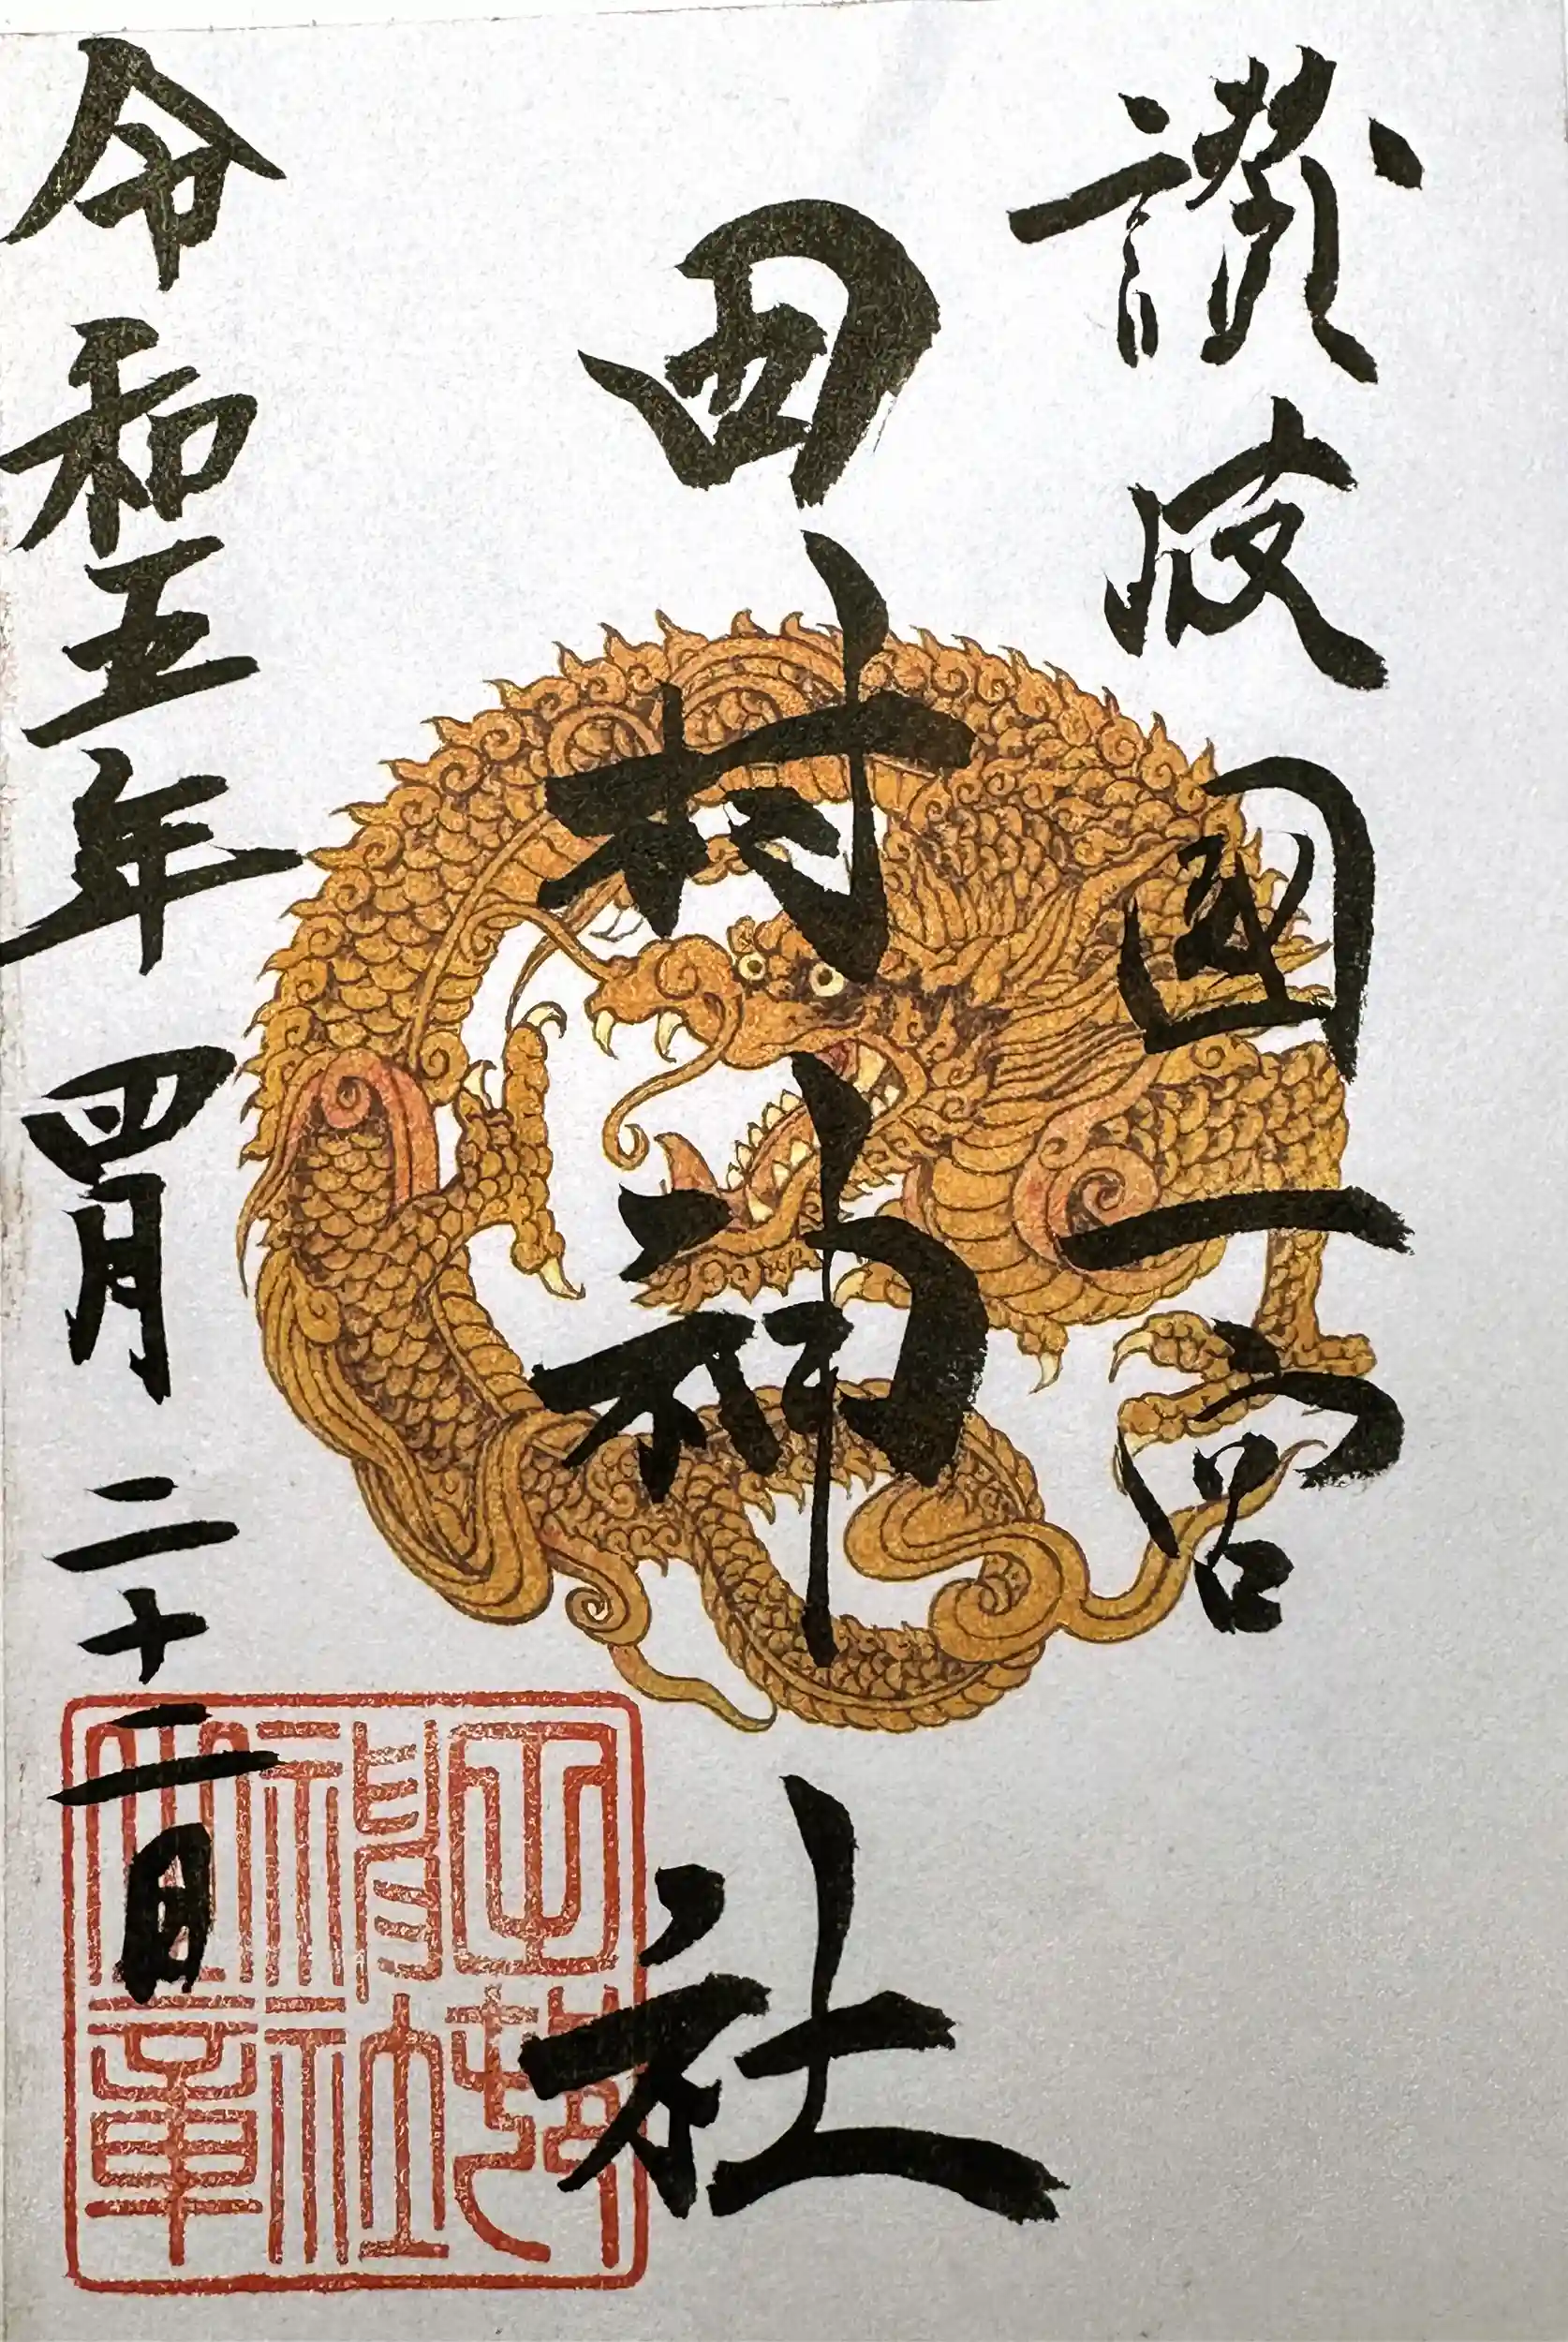 讃岐國一宮
田村神社
令和五年四月二十二日
田村神社之章